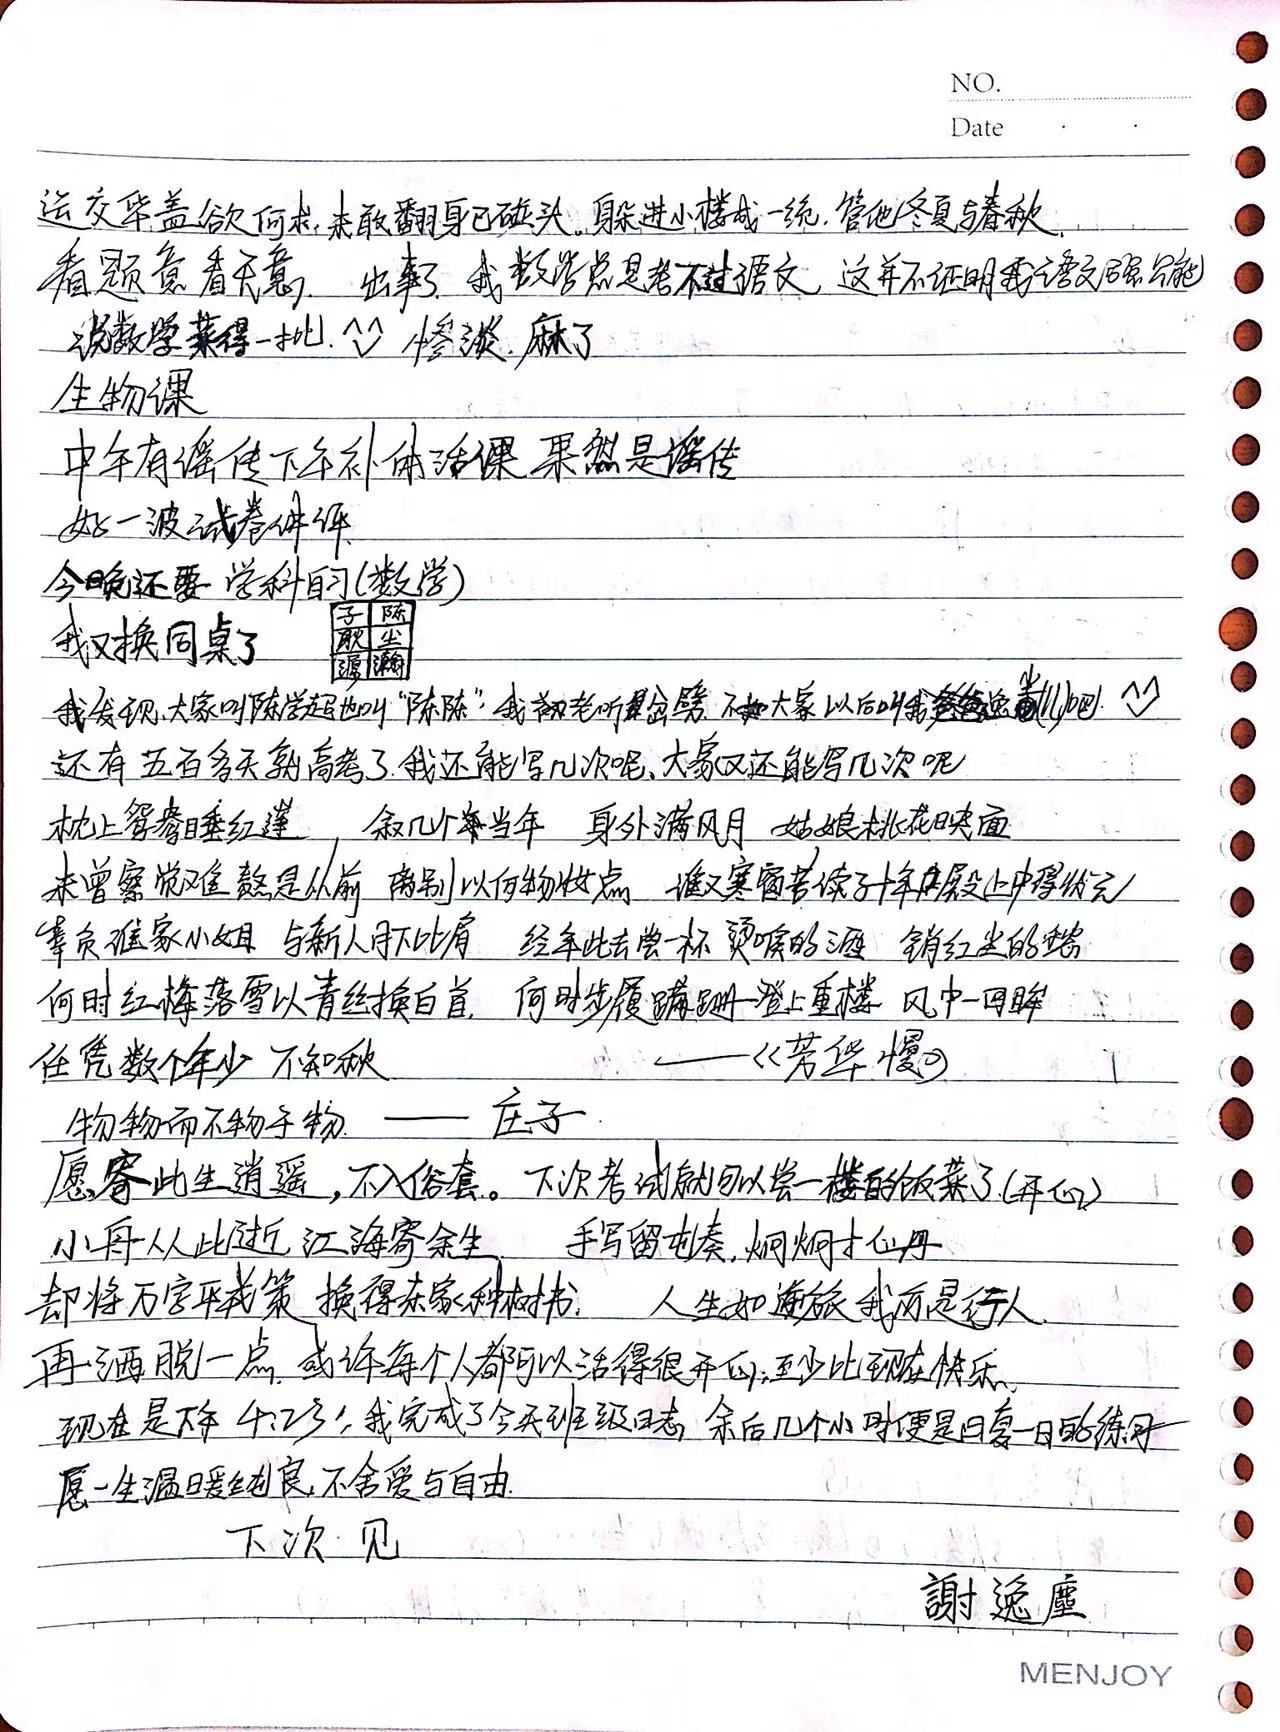 NO.
Date
运交华盖欲何求,未敢翻身已碰头。躲进小楼成一统,管他冬夏与春秋.
看题意看天意, 出事了 我数学总是考不过语文 这并不证明我语文强只能
说数学菜得一批. ^^ 惨淡.麻了
生物课
中午有谣传下午补体活课 果然是谣传
好一波试卷
今晚还要学科自习(数学)
我又换同桌了
子 陈
耿 尘
源 瀚
我发现大家叫陈学超也叫"陈陈" 我老听岔劈 不如大家以后叫我吧. ^^
还有五百多天就高考了.我还能写几次呢,大家又还能写几次呢
枕上鸳鸯睡红莲, 叙几个当年 身外满风月 姑娘桃花映面
未曾察觉难熬是从前 离别以何物妆点 谁又寒窗苦读了十年殿上中得状元
辜负谁家小姐 与新人月下比肩 经年此去尝一杯烫喉的酒 销红尘的愁
何时红梅落雪以青丝换白首 何时步履蹒跚登上重楼 风中一回眸
任凭数个年少 不知秋 ——《芳华慢》
物物而不物于物. —— 庄子
愿寄此生逍遥,不入俗套。下次考试就可以尝一楼的饭菜了(开心)
小舟从此逝 江海寄余生 手写留屯奏,炯炯寸心丹
却将万字平戎策 换得东家种树书. 人生如逆旅 我亦是行人
再洒脱一点,或许每个人都可以活得很开心,至少比现在快乐.
现在是下午4:23!我完成了今天班级日志,余后几个小时便是日复一日的练习
愿一生温暖纯良,不舍爱与自由.
下次见
謝逸塵
MENJOY